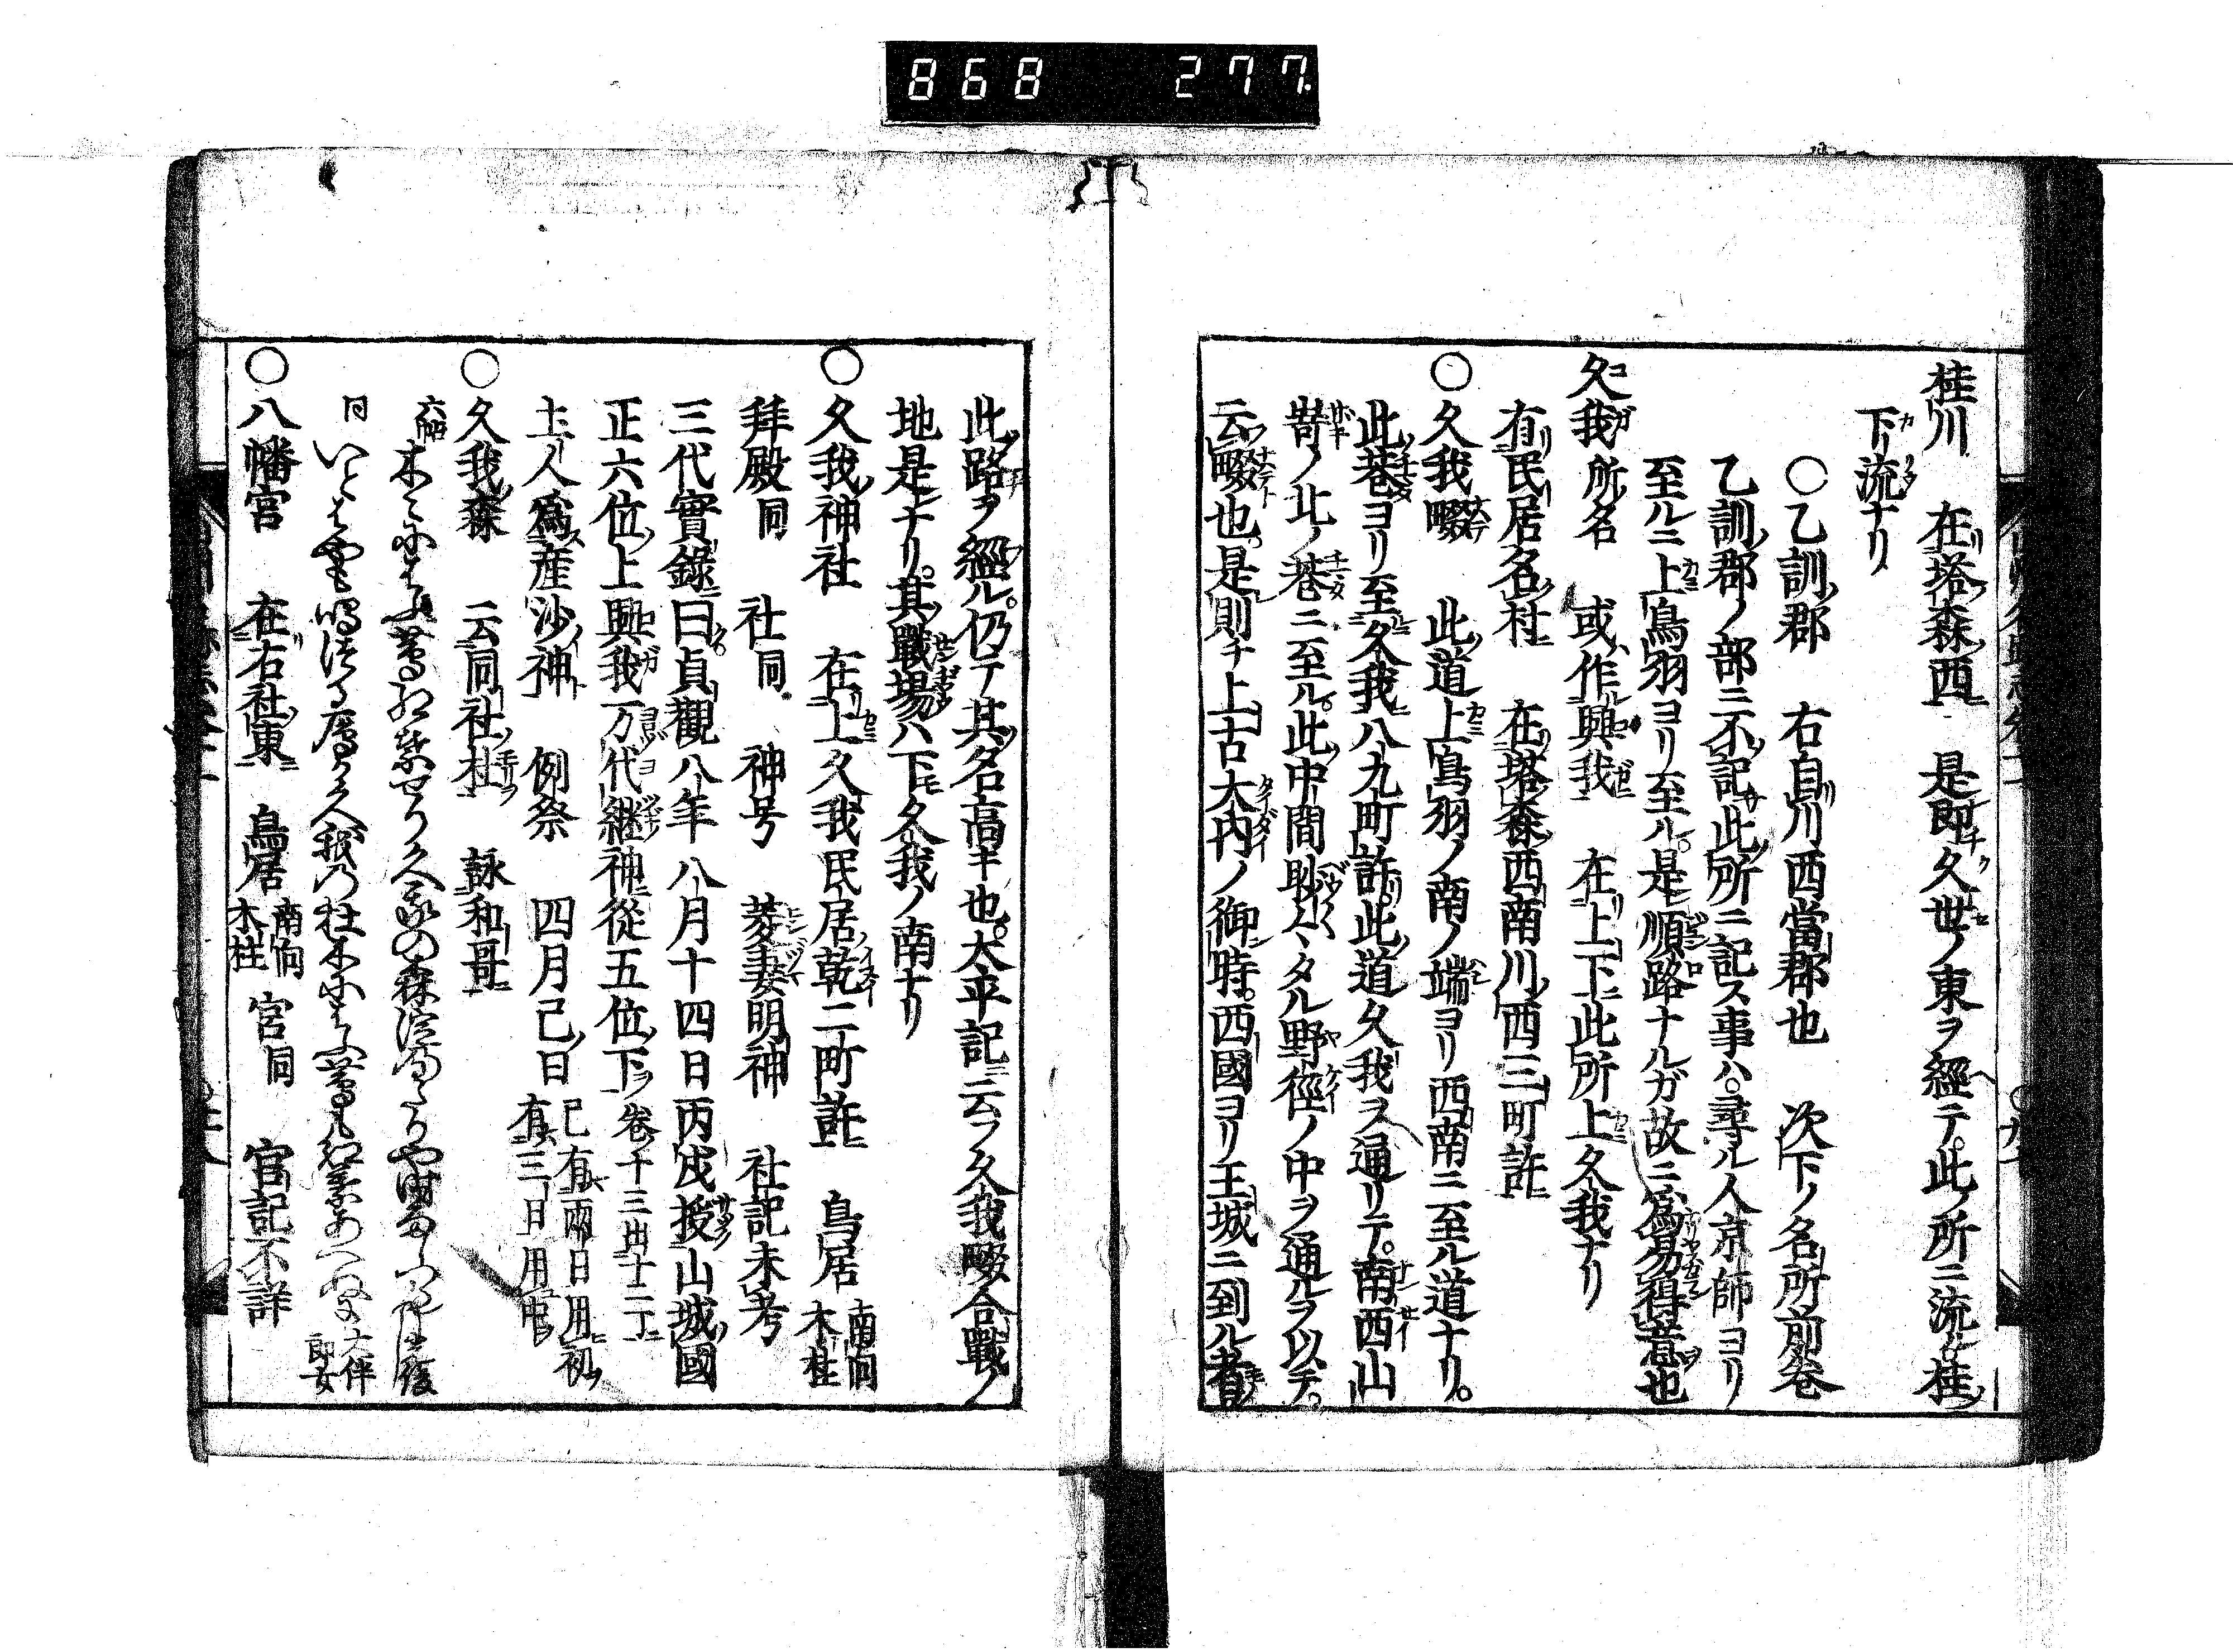 868 277
桂川 在塔森西 是即久世ノ東ヲ經テ此ノ所ニ流桂
下リ流ナリ
○乙訓郡 右自川西當郡也 次下ノ名所前卷
乙訓郡ノ部ニ不記此所ニ記ス事ハ尋ル人京師ヨリ
至ルニ上鳥羽ヨリ至ル是順路ナルガ故ニ為易得意也
久我 所名 或作興我 在上下此所上久我ナリ
有民居名村 在塔森西南川西三町許
○久我畷 此道上鳥羽ノ南ノ端ヨリ西南ニ至ル道ナリ
此巷ヨリ至久我八九町許此道久我ヲ通リテ南西山
﨑ノ北ノ巷ニ至ル此中間眇々タル野徑ノ中ヲ通ルヲ以テ
云畷也是則チ上古大内ノ御時西國ヨリ王城ニ到ル者
此路ヲ經ル仍テ其名高キ也太平記ニ云フ久我畷合戰ノ
地是ナリ其戰場ハ下久我ノ南ナリ
○久我神社 在上久我民居乾二町許 鳥居 南向木柱
拜殿同 社同 神号 菱妻明神 社記未考
三代實錄曰貞觀八年八月十四日丙戌授山城國
正六位上興我万代継神從五位下 卷十三出十二丁
土人為産沙神 例祭 四月己日 已有兩日用初有三日用中
○久我森 云同社杜 詠和哥
八幡宮 在右社東 鳥居 南向木柱 宮同 宮記不詳